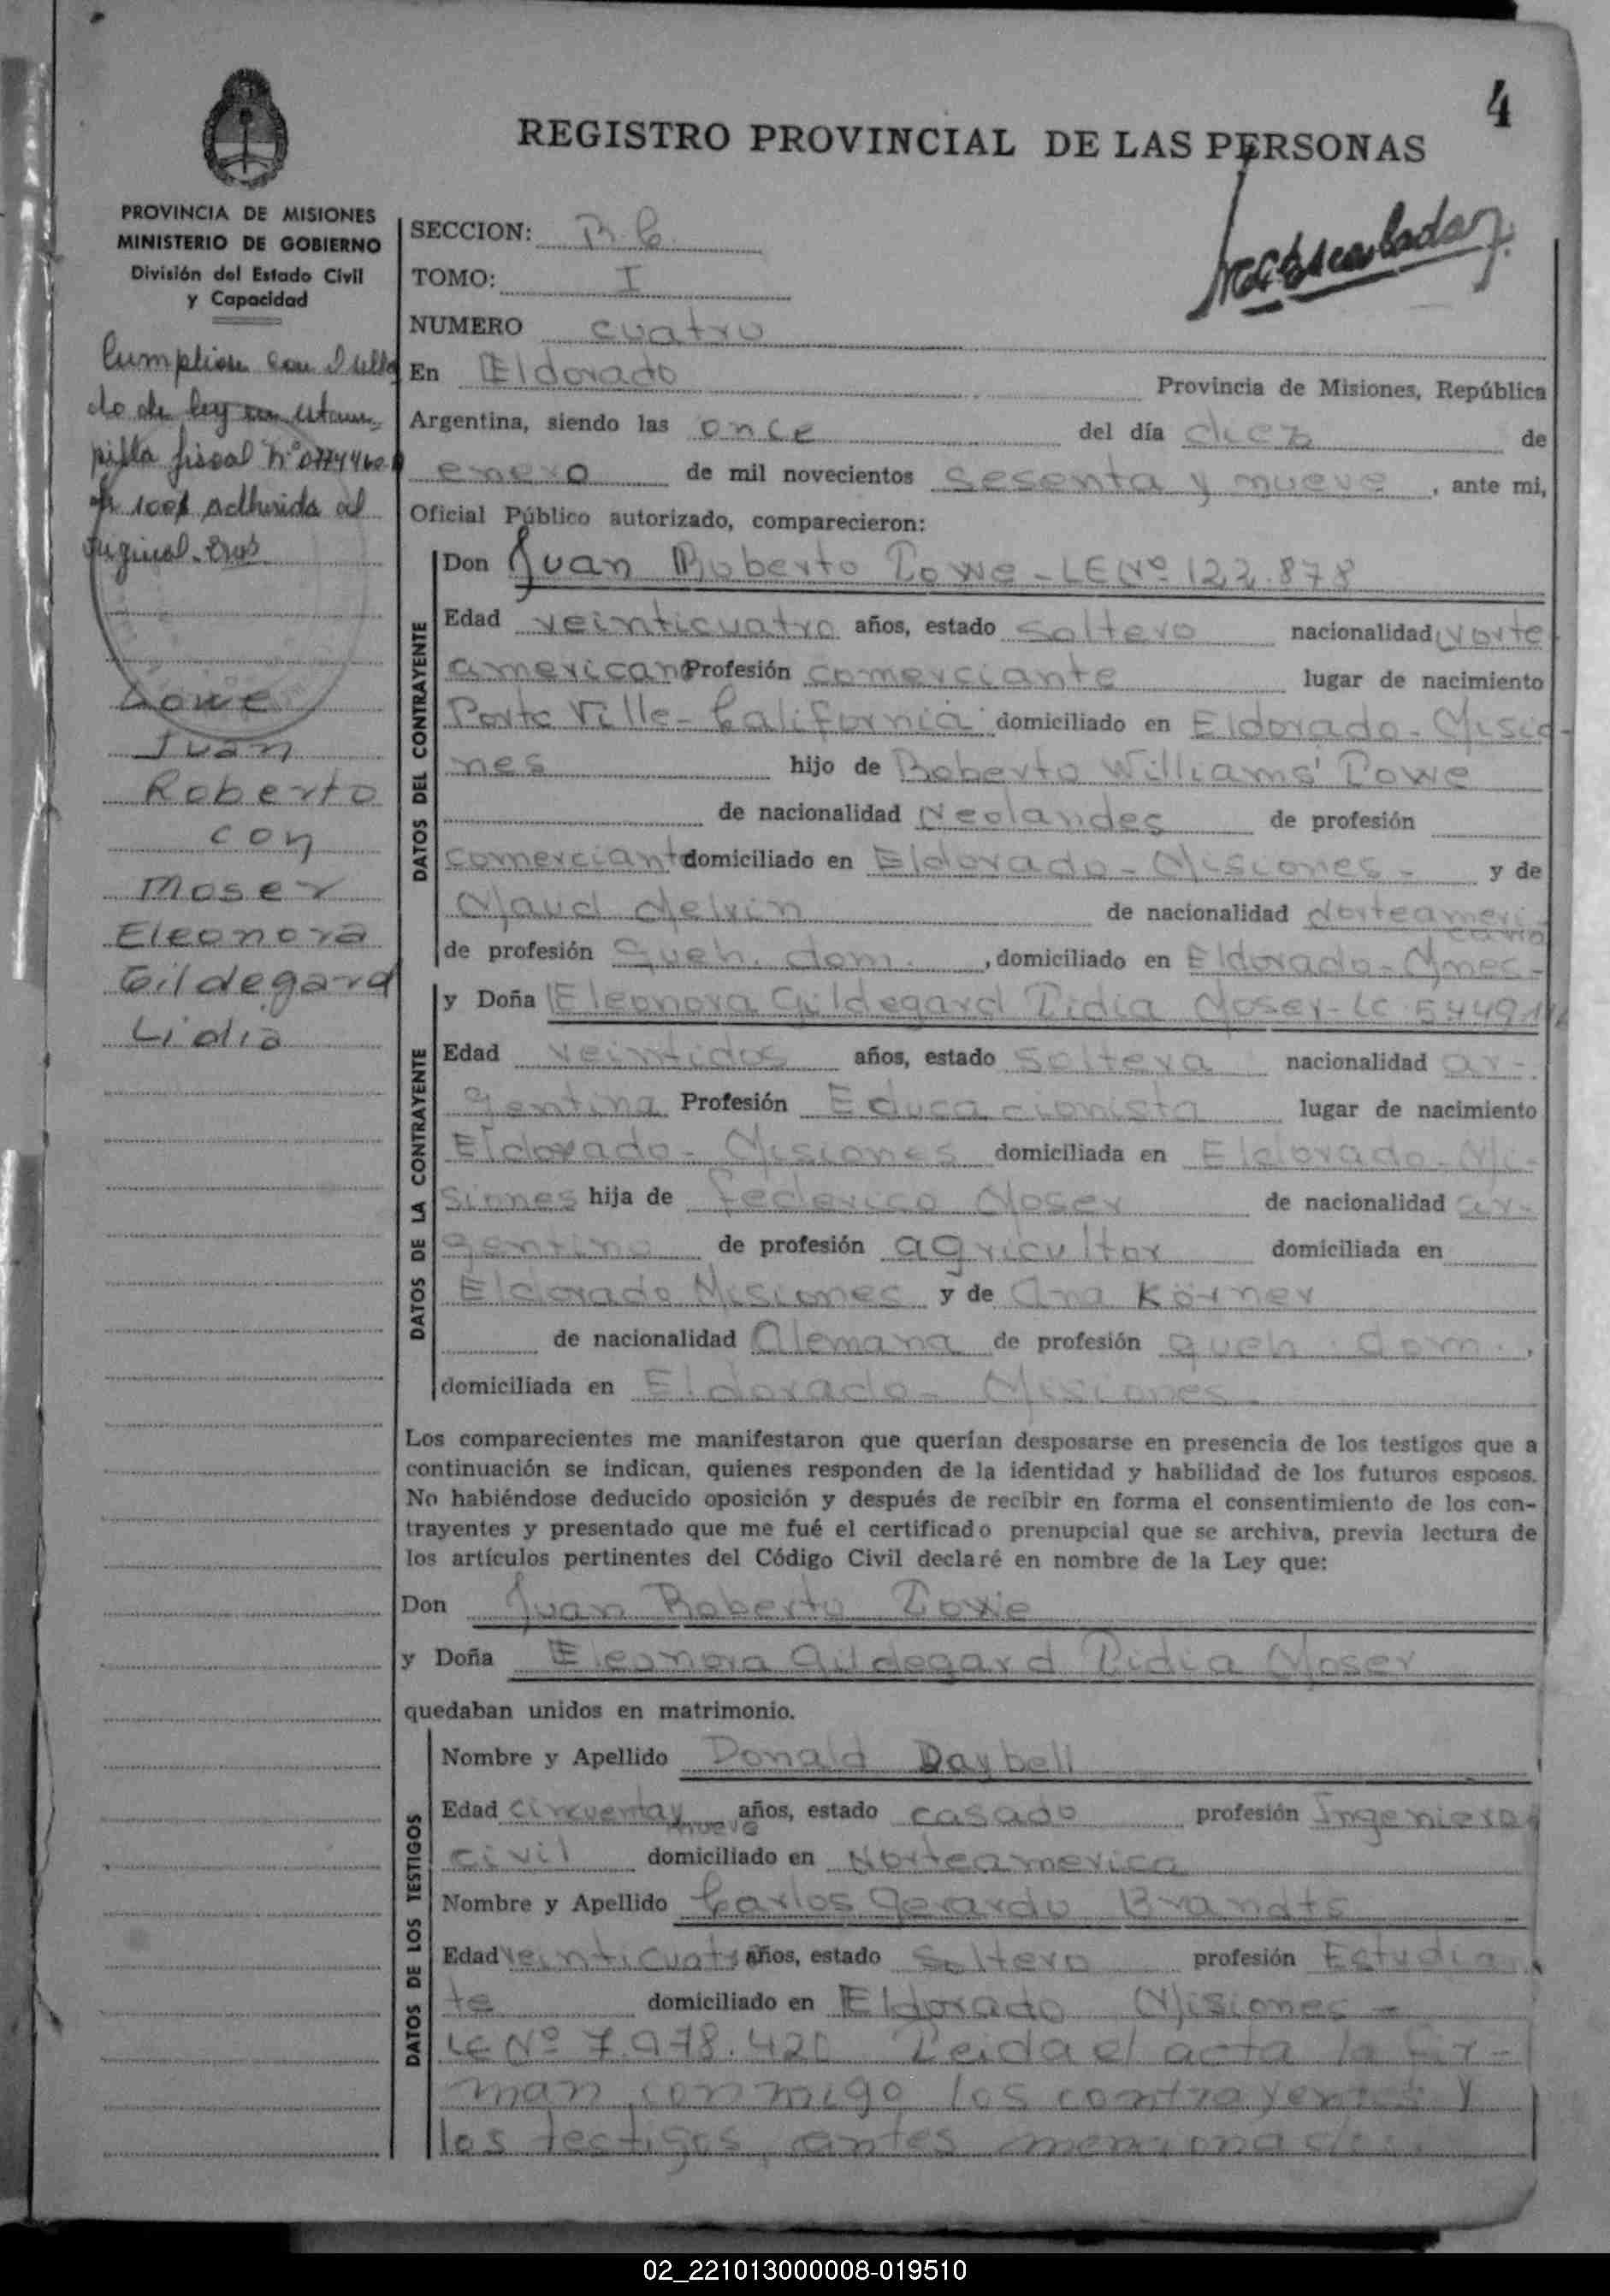 4
REGISTRO PROVINCIAL DE LAS PERSONAS
PROVINCIA DE MISIONES
MINISTERIO DE GOBIERNO
División del Estado Civil
y Capacidad
Cumpliose con
do de ley
fiscal Nº
adherida al
original
Lowe
Juan
Roberto
con
Moser
Eleonora
Gildegard
Lidia
SECCION: B.C.
TOMO: I
NUMERO cuatro
En Eldorado Provincia de Misiones, República
Argentina, siendo las once del día diez de
enero de mil novecientos sesenta y nueve, ante mi,
Oficial Público autorizado, comparecieron:
DATOS DEL CONTRAYENTE
Don Juan Roberto Lowe - LE Nº 122.878
Edad veinticuatro años, estado soltero nacionalidad Norte
americano Profesión comerciante lugar de nacimiento
Porte Ville - California domiciliado en Eldorado - Misio-
nes hijo de Roberto Williams Lowe
de nacionalidad Neolandes de profesión
comerciante domiciliado en Eldorado - Misiones - y de
Maud Melvin de nacionalidad Norteameri
cana
de profesión Queh. dom. , domiciliado en Eldorado - Mnes -
DATOS DE LA CONTRAYENTE
y Doña Eleonora Gildegard Lidia Moser - LC
Edad veintidos años, estado soltera nacionalidad ar-
gentina Profesión Educacionista lugar de nacimiento
Eldorado - Misiones domiciliada en Eldorado - Mi-
siones hija de Federico Moser de nacionalidad ar-
gentino de profesión agricultor domiciliada en
Eldorado Misiones y de Ana Körner
de nacionalidad Alemana de profesión queh. dom.,
domiciliada en Eldorado - Misiones
Los comparecientes me manifestaron que querían desposarse en presencia de los testigos que a
continuación se indican, quienes responden de la identidad y habilidad de los futuros esposos.
No habiéndose deducido oposición y después de recibir en forma el consentimiento de los con-
trayentes y presentado que me fué el certificado prenupcial que se archiva, previa lectura de
los artículos pertinentes del Código Civil declaré en nombre de la Ley que:
Don Juan Roberto Lowe
y Doña Eleonora Gildegard Lidia Moser
quedaban unidos en matrimonio.
DATOS DE LOS TESTIGOS
Nombre y Apellido Donald Daybell
Edad cincuenta y nueve años, estado casado profesión Ingeniero
civil domiciliado en Norteamerica
Nombre y Apellido Carlos Gerardo Brandts
Edad veinticuatro años, estado soltero profesión Estudian
te domiciliado en Eldorado Misiones -
LE Nº 7.978.420 Leida el acta la fir-
man conmigo los contrayentes y
los testigos antes mencionados
02_221013000008-019510